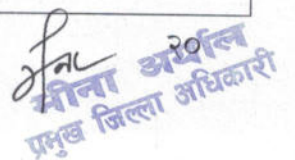 २०
मीना अर्याल
प्रमुख जिल्ला अधिकारी